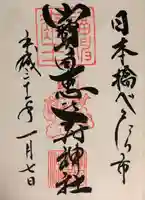 日本橋べったら市
寶田恵比寿神社
平成 年 一月七日